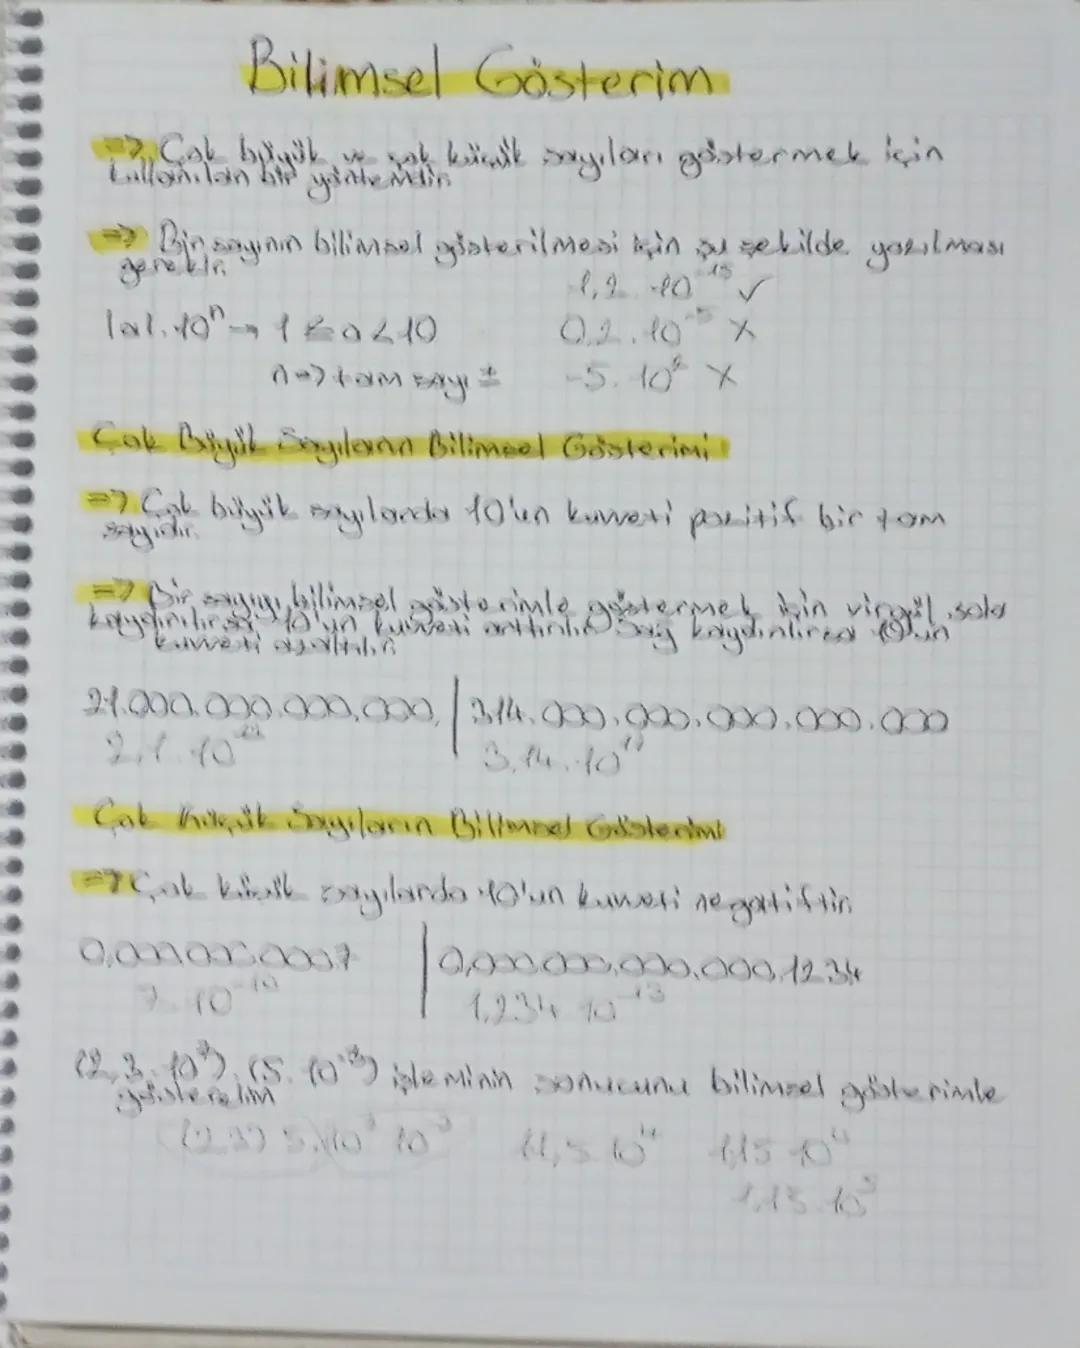 Bilimsel Gösterim
=> Çok büyük ve çok küçük sayıları göstermek için
kullanılan bir yöntemdir.
=> Bir sayının bilimsel gösterilmesi için şu şekilde yazılması
gerekir.
1,2.10⁻¹⁵ ✓
|a|.10ⁿ → 1 ≤ a < 10
0,2.10⁻⁵ X
n => tam sayı ±
-5.10 X
Çok Büyük Sayıların Bilimsel Gösterimi
=> Çok büyük sayılarda 10'un kuvveti pozitif bir tam
sayıdır.
=> Bir sayıyı bilimsel gösterimle göstermek için virgül sola
kaydırılırsa 10'un kuvveti arttırılır Sağ kaydırılırsa 10'un
kuvveti azaltılır.
21.000.000.000.000, | 314.000.000.000.000.000
2,1.10
3,14.10
Çok Küçük Sayıların Bilimsel Gösterimi
=> Çok küçük sayılarda 10'un kuvveti negatiftir.
0,0000000007 | 0,000.000.000.000.1234
7.10⁻¹⁰
1,234 10⁻¹³
(2,3.10).(5.10) işleminin sonucunu bilimsel gösterimle
gösterelim
(2,3) 5.10 10
11,5 10⁴
1,15 10
1,15.10⁵